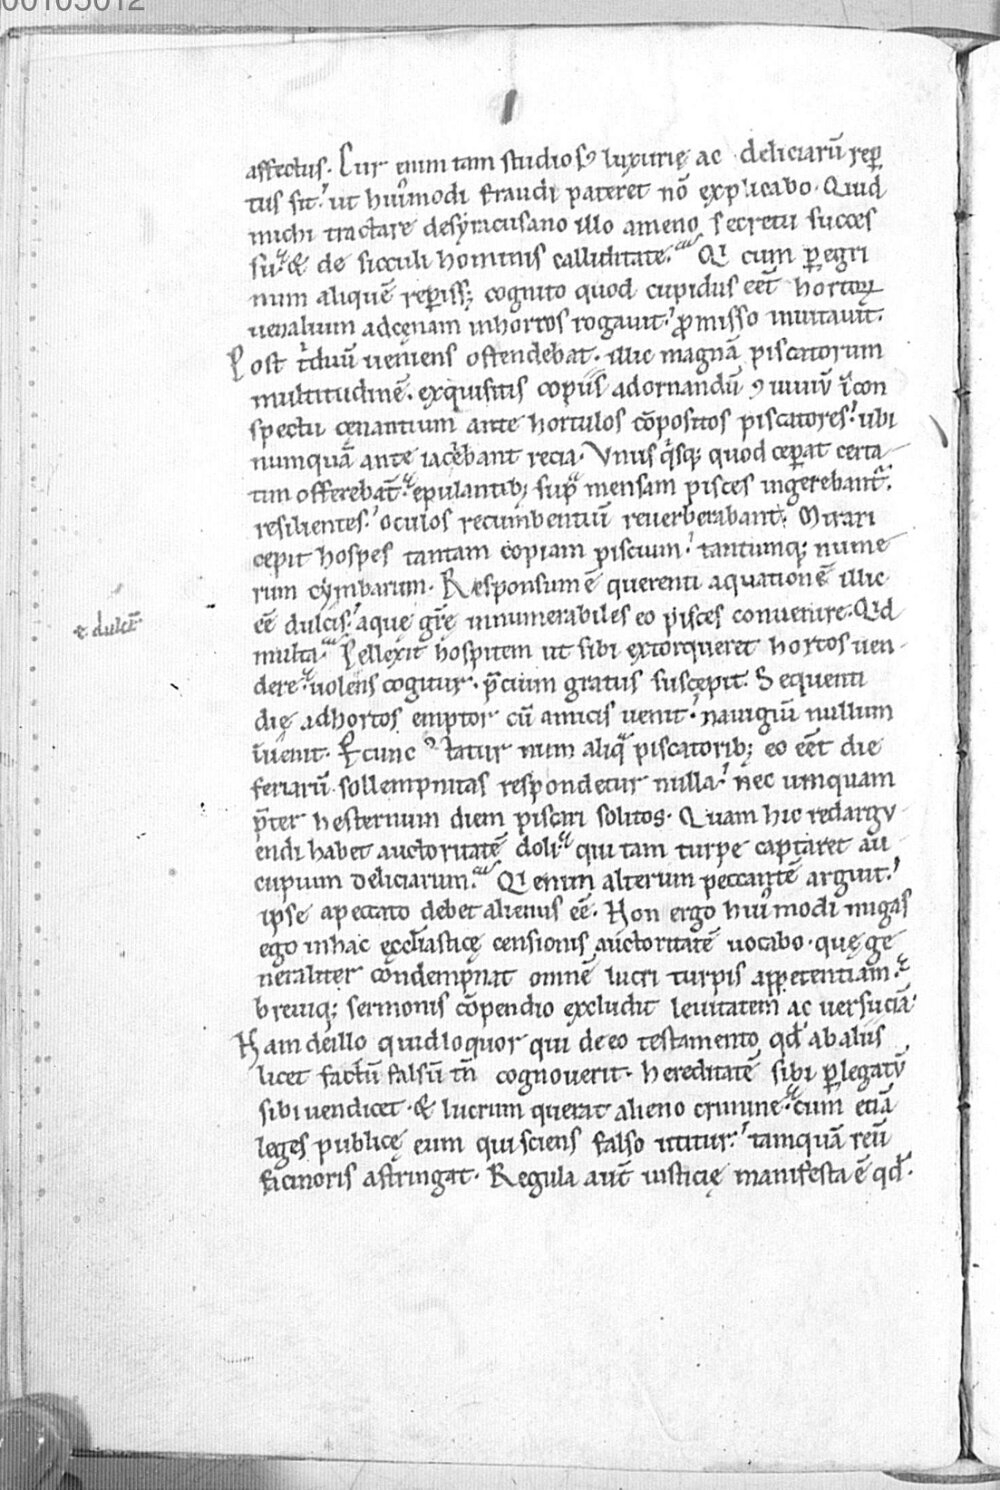 00103012
affectus. Cur enim tam studios9 luxurię ac deliciarū rep̱
tus sit? ut hui9modi fraudi pateret nō explicabo. Quid
michi tractare desyracusano illo ameno secretu succes
su. & de sicculi hominis calliditate. Qi cum p̱egri
num aliquē rep̱iss; cognito quod cupidus eēt hortoꝝ
uenalium adcęnam inhortos rogauit. p̱misso inuitauit.
Post triduū ueniens ostendebat. illic magnā piscatorum
multitudinē. exquisitis copiis adornandū ꝯuiuiū. icon
spectu cenantium ante hortulos cōpositos piscatores. ubi
numquā ante iacebant recia. Vnus qisq; quod cep̱at certa
tim offerebat. epulantib; supra mensam pisces ingerebant.
resilientes. oculos recumbentiū reuerberabant. Mirari
cepit hospes tantam copiam piscium. tantumq; nume
rum cymbarum. Responsum ē querenti aquationē illic
eē dulcis. aquę grę innumerabiles eo pisces conuenire. Qd
ę dulcē
multa. Pellexit hospitem ut sibi extorqueret hortos uen
dere. uolens cogitur. p̄cium gratus suscępit. Sequenti
die adhortos emptor cū amicis uenit. nauigiū nullum
īuenit. Percunctatur num aliqa piscatorib; eo eēt die
feriarū sollempnitas respondetur nulla. nec umquam
p̄ter hesternum diem piscari solitos. Quam hic redargu
endi habet auctoritatē doli. qui tam turpe captaret au
cupium deliciarum. Qi enim alterum peccantē arguit.
ipse apeccato debet alienus eē. Non ergo hui9modi nugas
ego inhac ecclīasticę censionis auctoritatē uocabo. quę ge
neraliter condempnat omnē lucri turpis appetentiam.
breuiq; sermonis cōpendio excludit leuitatem ac uersuciā.
Nam deillo quidloquor qui deeo testamento qd̄ abaliis
licet factū falsū tn̄ cognouerit. hereditatē sibi p̱legatū
sibi uendicet. & lucrum querat alieno crimine. cum etiā
leges publicę eum qui sciens falso utitur. tamquā reū
facinoris astringat. Regula aut̄ iusticię manifesta ē qd̄.